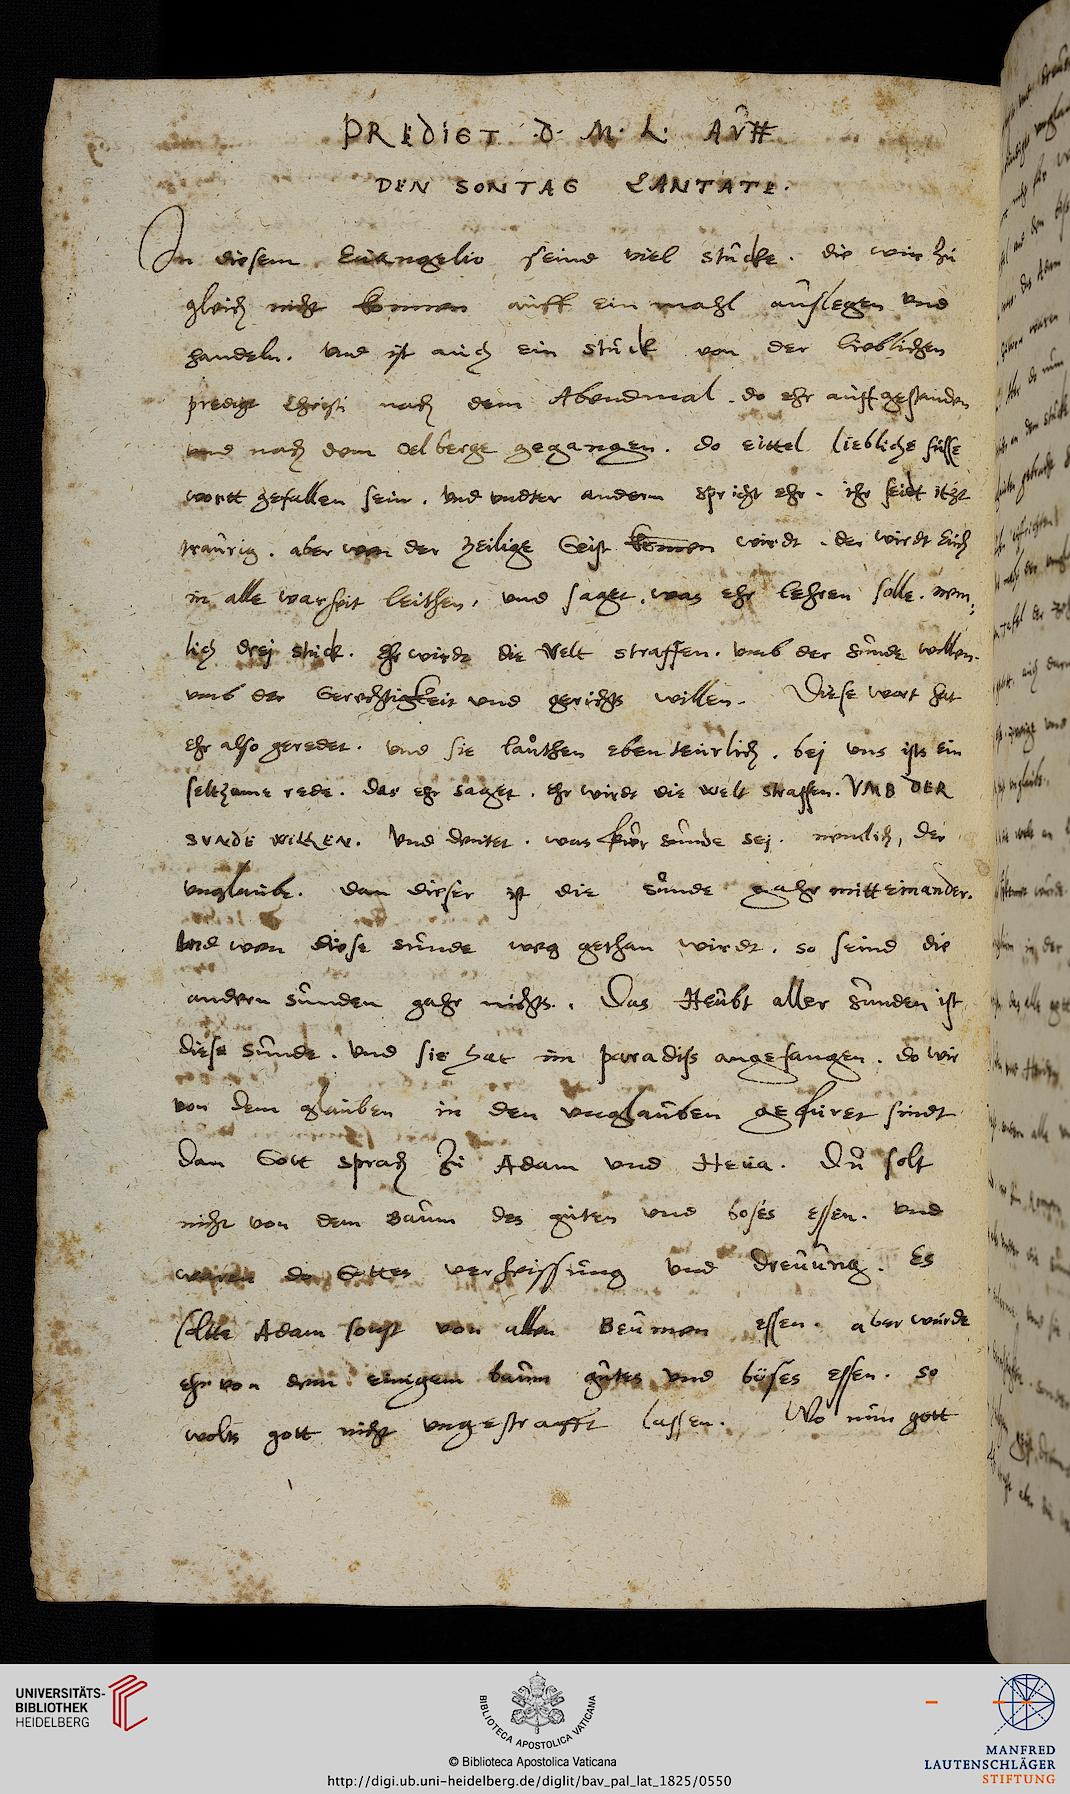 PREDIGT D. M. L. AUFF
DEN SONTAG CANTATE.
In diesem Euangelio seind viel stücke. die wir zu
gleich nicht konnen auff ein mahl auslegen vnd
handeln. vnd ist auch ein stück von der lieblichen
predigt Christi nach dem Abendmal. do ehr auffgestanden
vnd nach dem Oelberge gegangen. do eittel liebliche süsse
wortt gefallen sein. vnd vndter andern spricht ehr. ihr seidt itzt
traurig. aber wen der heilige Geist komen wirdt. der wirdt euch
in alle warheit leithen, vnd saget, was ehr lehren solle. nem;
lich drej stück. Ehr wirdt die Welt straffen. vmb der sünde willen.
vmb der Gerechtigkeit vnd gerichts willen. Diese wort hat
ehr also geredet. vnd sie lauthen ebenteurlich. bej vns ists ein
seltzame rede. das ehr saget. Ehr wirdt die welt straffen. VMB DER
SVNDE WILLEN. Vnd deutet. was fur sünde sej. nemlich, der
vnglaube. dan dieser ist die sünde gahr mitt einander.
Vnd wen diese sünde weg gethan wirdt. so seind die
andern sünden gahr nichts. Das Heubt aller sünden ist
diese sünde. Vnd sie hat im paradiss angefangen. do wir
von dem glauben in den vnglauben gefuret sindt
dan Gott sprach zu Adam vnd Heua. Du solt
nicht von dem Baum des guten vnd boses essen. vnd
waren do Gottes verheissung vnd dreuung. Es
soltte Adam sonst von allen Beumen essen. aber wurde
ehr von dem einigem baum gutes vnd böses essen. so
wolts gott nicht vngestrafft lassen. Wo nun gott
UNIVERSITÄTS-
BIBLIOTHEK
HEIDELBERG
BIBLIOTECA APOSTOLICA VATICANA
© Biblioteca Apostolica Vaticana
http://digi.ub.uni-heidelberg.de/diglit/bav_pal_lat_1825/0550
MANFRED
LAUTENSCHLÄGER
STIFTUNG